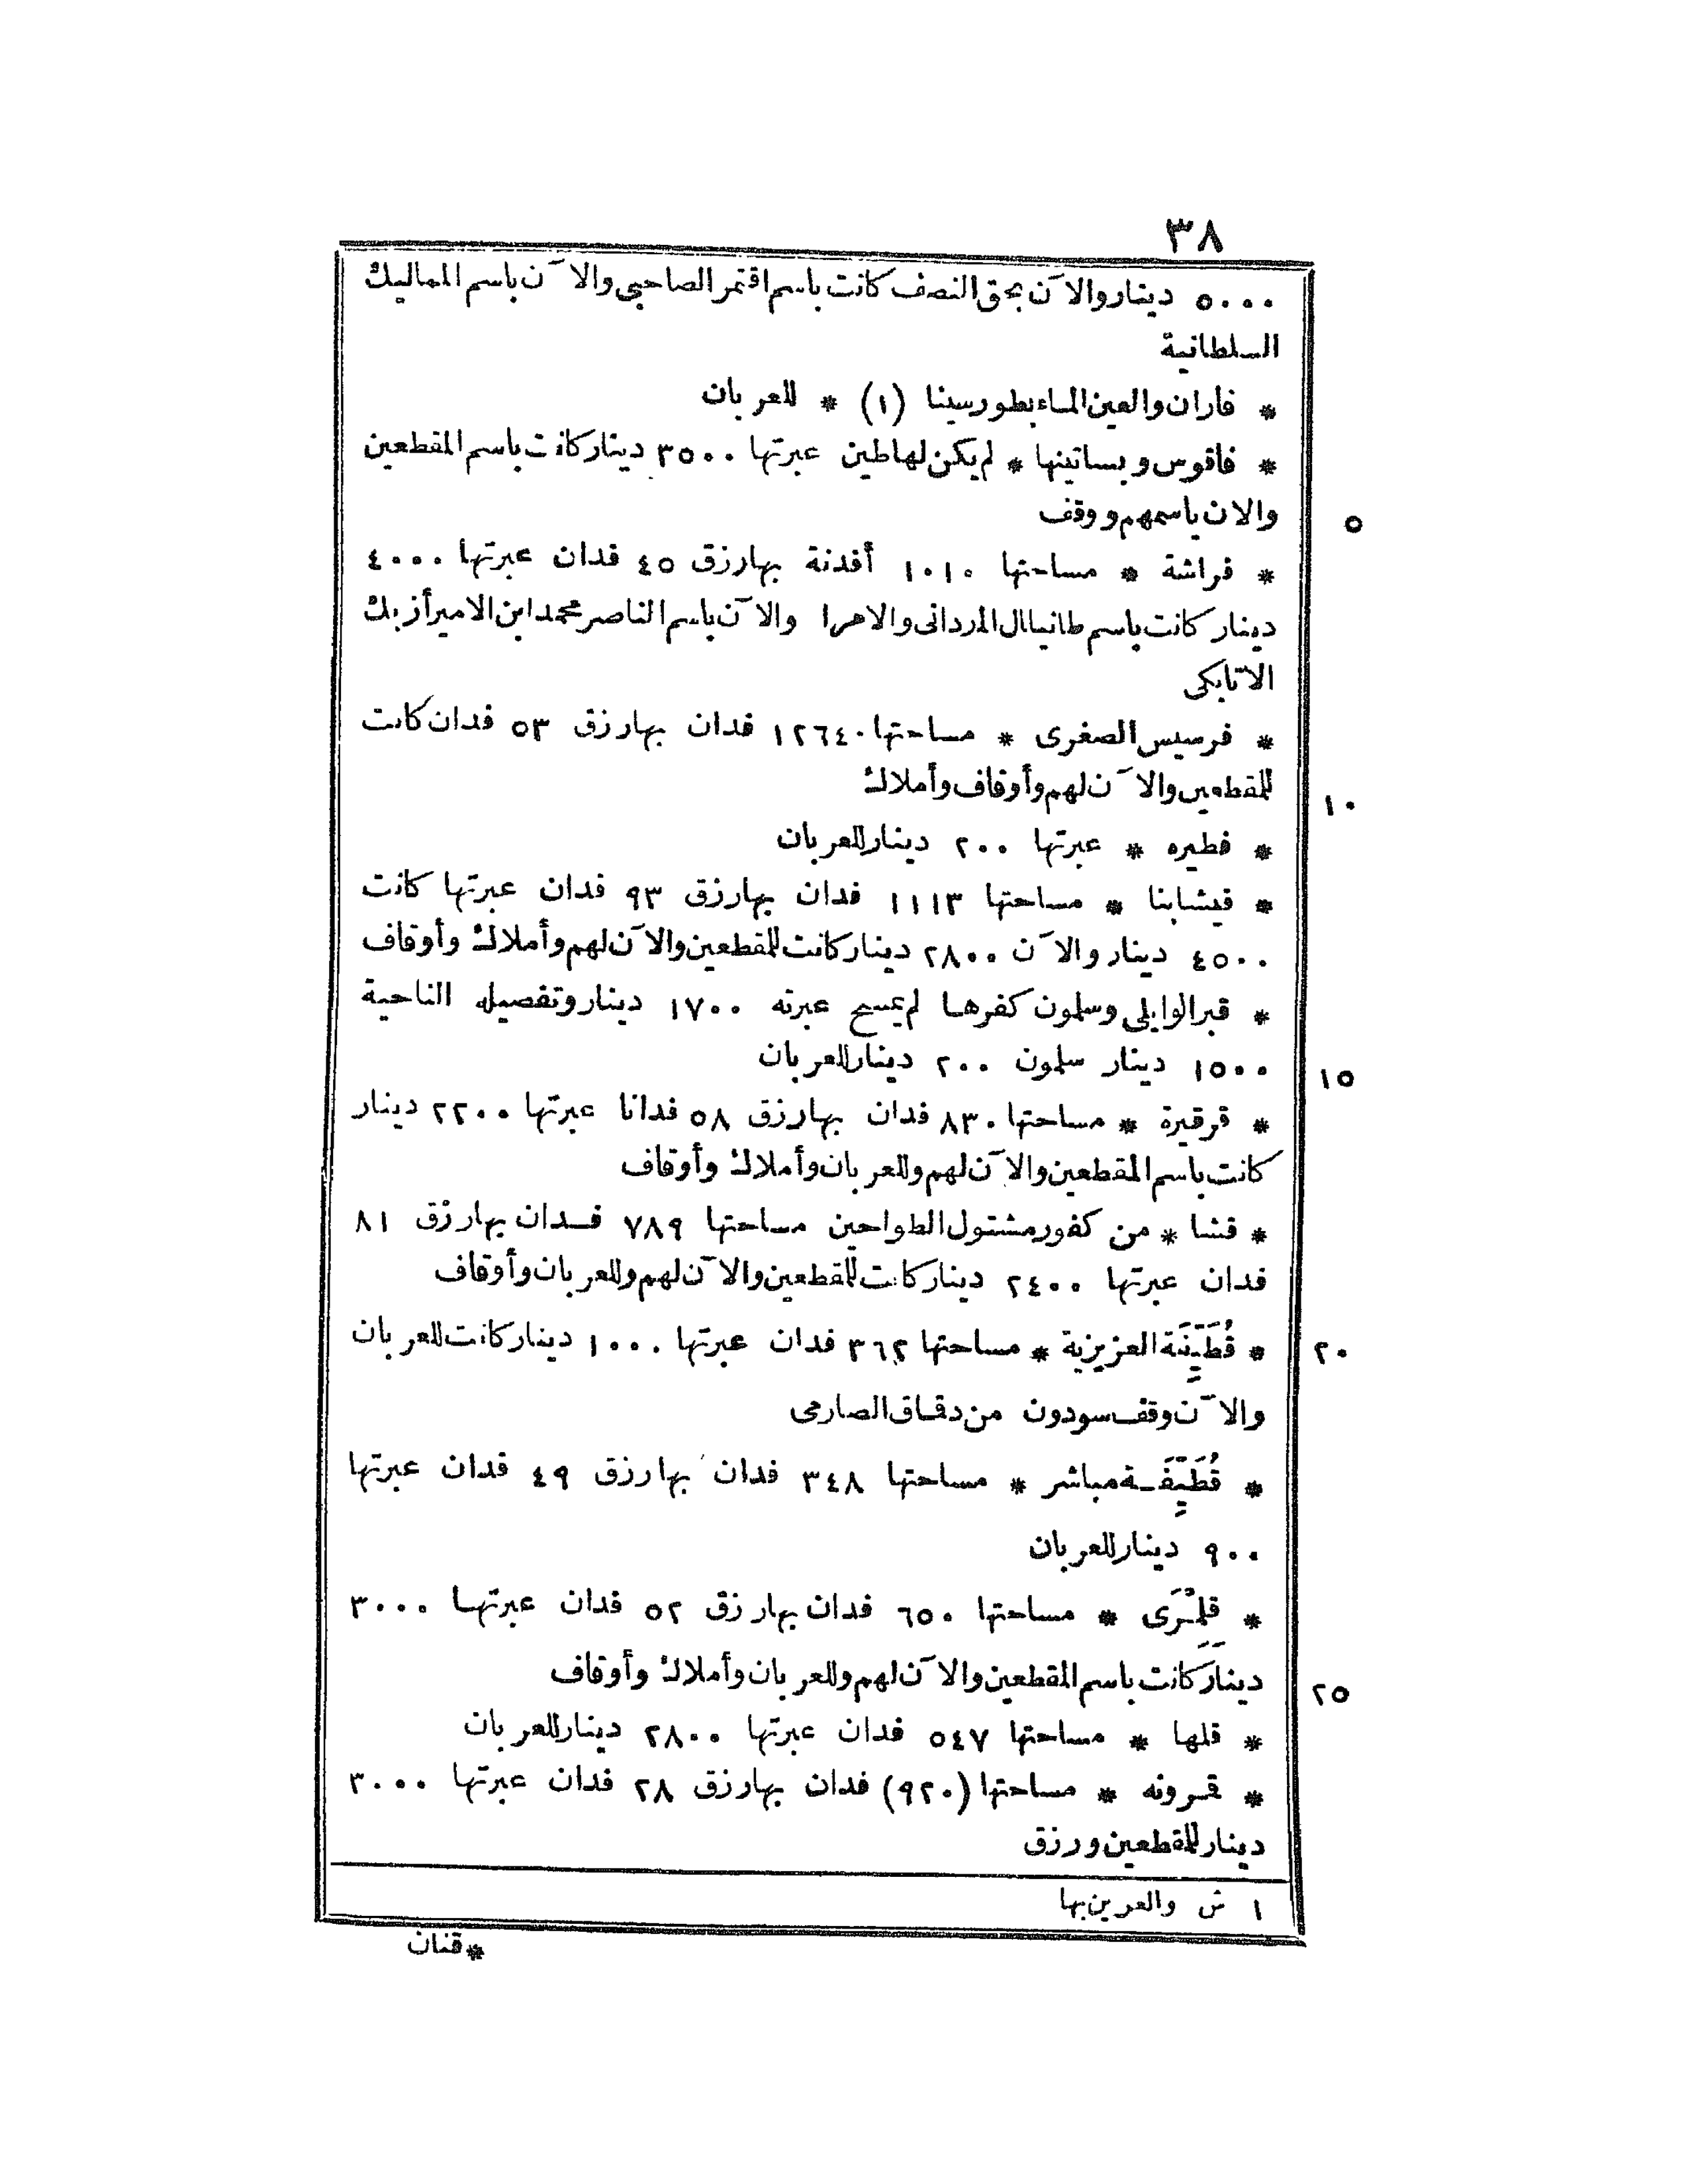 ٣٨
٥٠٠٠ دينار والآن بحق النصف كانت باسم اقتمر الصاحبى والآن باسم المماليك
السلطانية
* فاران والعين الماء بطور سينا (١) * للعربان
* فاقوس وبساتينها * لم يكن لها طين عبرتها ٣٥٠٠ دينار كانت باسم المقطعين
٥ والان باسمهم ووقف
* فراشة * مساحتها ١٠١٠ أفدنة بها رزق ٤٥ فدان عبرتها ٤٠٠٠
دينار كانت باسم طانيال المردانى والامرا والآن باسم الناصر محمد ابن الامير أزبك
الاتابكى
* فرسيس الصغرى * مساحتها ١٢٦٤٠ فدان بها رزق ٥٣ فدان كانت
١٠ للمقطعين والآن لهم وأوقاف وأملاك
* فطيره * عبرتها ٢٠٠ دينار للعربان
* فيشا بنا * مساحتها ١١١٣ فدان بها رزق ٩٣ فدان عبرتها كانت
٤٥٠٠ دينار والآن ٢٨٠٠ دينار كانت للمقطعين والآن لهم وأملاك وأوقاف
* قبر الوايلى وسلمون كفرها لم يمسح عبرته ١٧٠٠ دينار وتفصيله الناحية
١٥ ١٥٠٠ دينار سلمون ٢٠٠ دينار للعربان
* قرقيرة * مساحتها ٨٣٠ فدان بها رزق ٥٨ فدانا عبرتها ٢٢٠٠ دينار
كانت باسم المقطعين والآن لهم وللعربان وأملاك وأوقاف
* قشا * من كفور مشتول الطواحين مساحتها ٧٨٩ فدان بها رزق ٨١
فدان عبرتها ٢٤٠٠ دينار كانت للمقطعين والآن لهم وللعربان وأوقاف
٢٠ * قُطَيِّنَة العزيزية * مساحتها ٣٦٢ فدان عبرتها ١٠٠٠ دينار كانت للعربان
والآن وقف سودون من دقاق الصارمى
* قُطَيِّفَة مباشر * مساحتها ٣٤٨ فدان بها رزق ٤٩ فدان عبرتها
٩٠٠ دينار للعربان
* قلمْرَى * مساحتها ٦٥٠ فدان بها رزق ٥٢ فدان عبرتها ٣٠٠٠
٢٥ دينار كانت باسم المقطعين والآن لهم وللعربان وأملاك وأوقاف
* قلها * مساحتها ٥٤٧ فدان عبرتها ٢٨٠٠ دينار للعربان
* قمرونه * مساحتها (٩٢٠) فدان بها رزق ٢٨ فدان عبرتها ٣٠٠٠
دينار للمقطعين ورزق
١ ش والعرين بها
* قنان